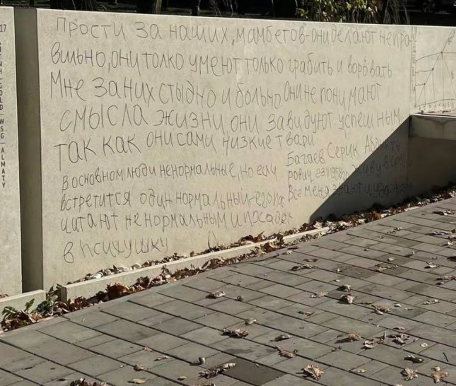 прости за наших, мамбетов-они делают непра
вильно, они толко умеют только грабить и воровать
Мне за них стыдно и больно они не понимают
смысла жизни, они завидуют успешным
так как они сами низкие твари
Багаев Серик
в основном люди ненормальные, но если
встретится один нормальный его
Все меня знают и
читают ненормальным и посадят
в психушку
17
ALMATY